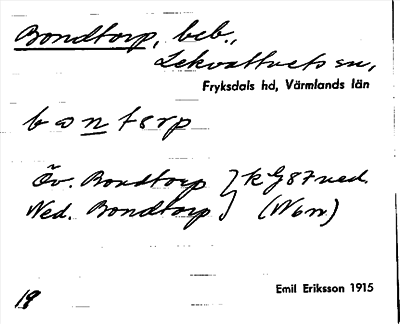 Bondtorp, beb.,
Lekvattnets sn,
Fryksdals hd, Värmlands län
bontorp
Öv. Bondtorp } k G 87 ned.
Ned. Bondtorp } (Wbn)
18
Emil Eriksson 1915